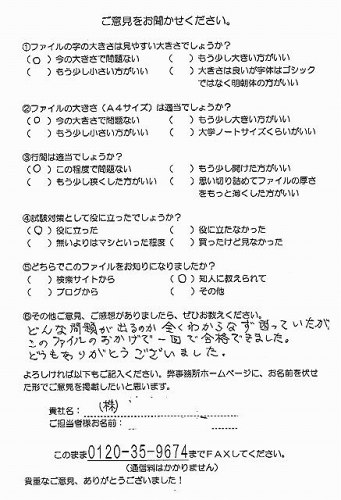 ご意見をお聞かせください。
①ファイルの字の大きさは見やすい大きさでしょうか？
(○) 今の大きさで問題ない　( ) もう少し大きい方がいい
( ) もう少し小さい方がいい　( ) 大きさは良いが字体はゴシック
ではなく明朝体の方がいい
②ファイルの大きさ（A4サイズ）は適当でしょうか？
(○) 今の大きさで問題ない　( ) もう少し大きい方がいい
( ) もう少し小さい方がいい　( ) 大学ノートサイズくらいがいい
③行間は適当でしょうか？
(○) この程度で問題ない　( ) もう少し開けた方がいい
( ) もう少し狭くした方がいい　( ) 思い切り詰めてファイルの厚さ
をもっと薄くした方がいい
④試験対策として役に立ったでしょうか？
(○) 役に立った　( ) 役に立たなかった
( ) 無いよりはマシといった程度　( ) 買ったけど見なかった
⑤どちらでこのファイルをお知りになりましたか？
( ) 検索サイトから　(○) 知人に教えられて
( ) ブログから　( ) その他
⑥その他ご意見、ご感想がありましたら、ぜひお教えください。
どんな問題が出るのか全くわからなず困っていたが
このファイルのおかげで一回で合格できました。
どうもありがとうございました。
よろしければ以下もご記入ください。弊事務所ホームページに、お名前を伏せ
た形でご意見を掲載したいと思います。
貴社名：（株）
ご担当者様お名前：
このまま0120-35-9674までFAXしてください。
（通信料はかかりません）
貴重なご意見、ありがとうございました！